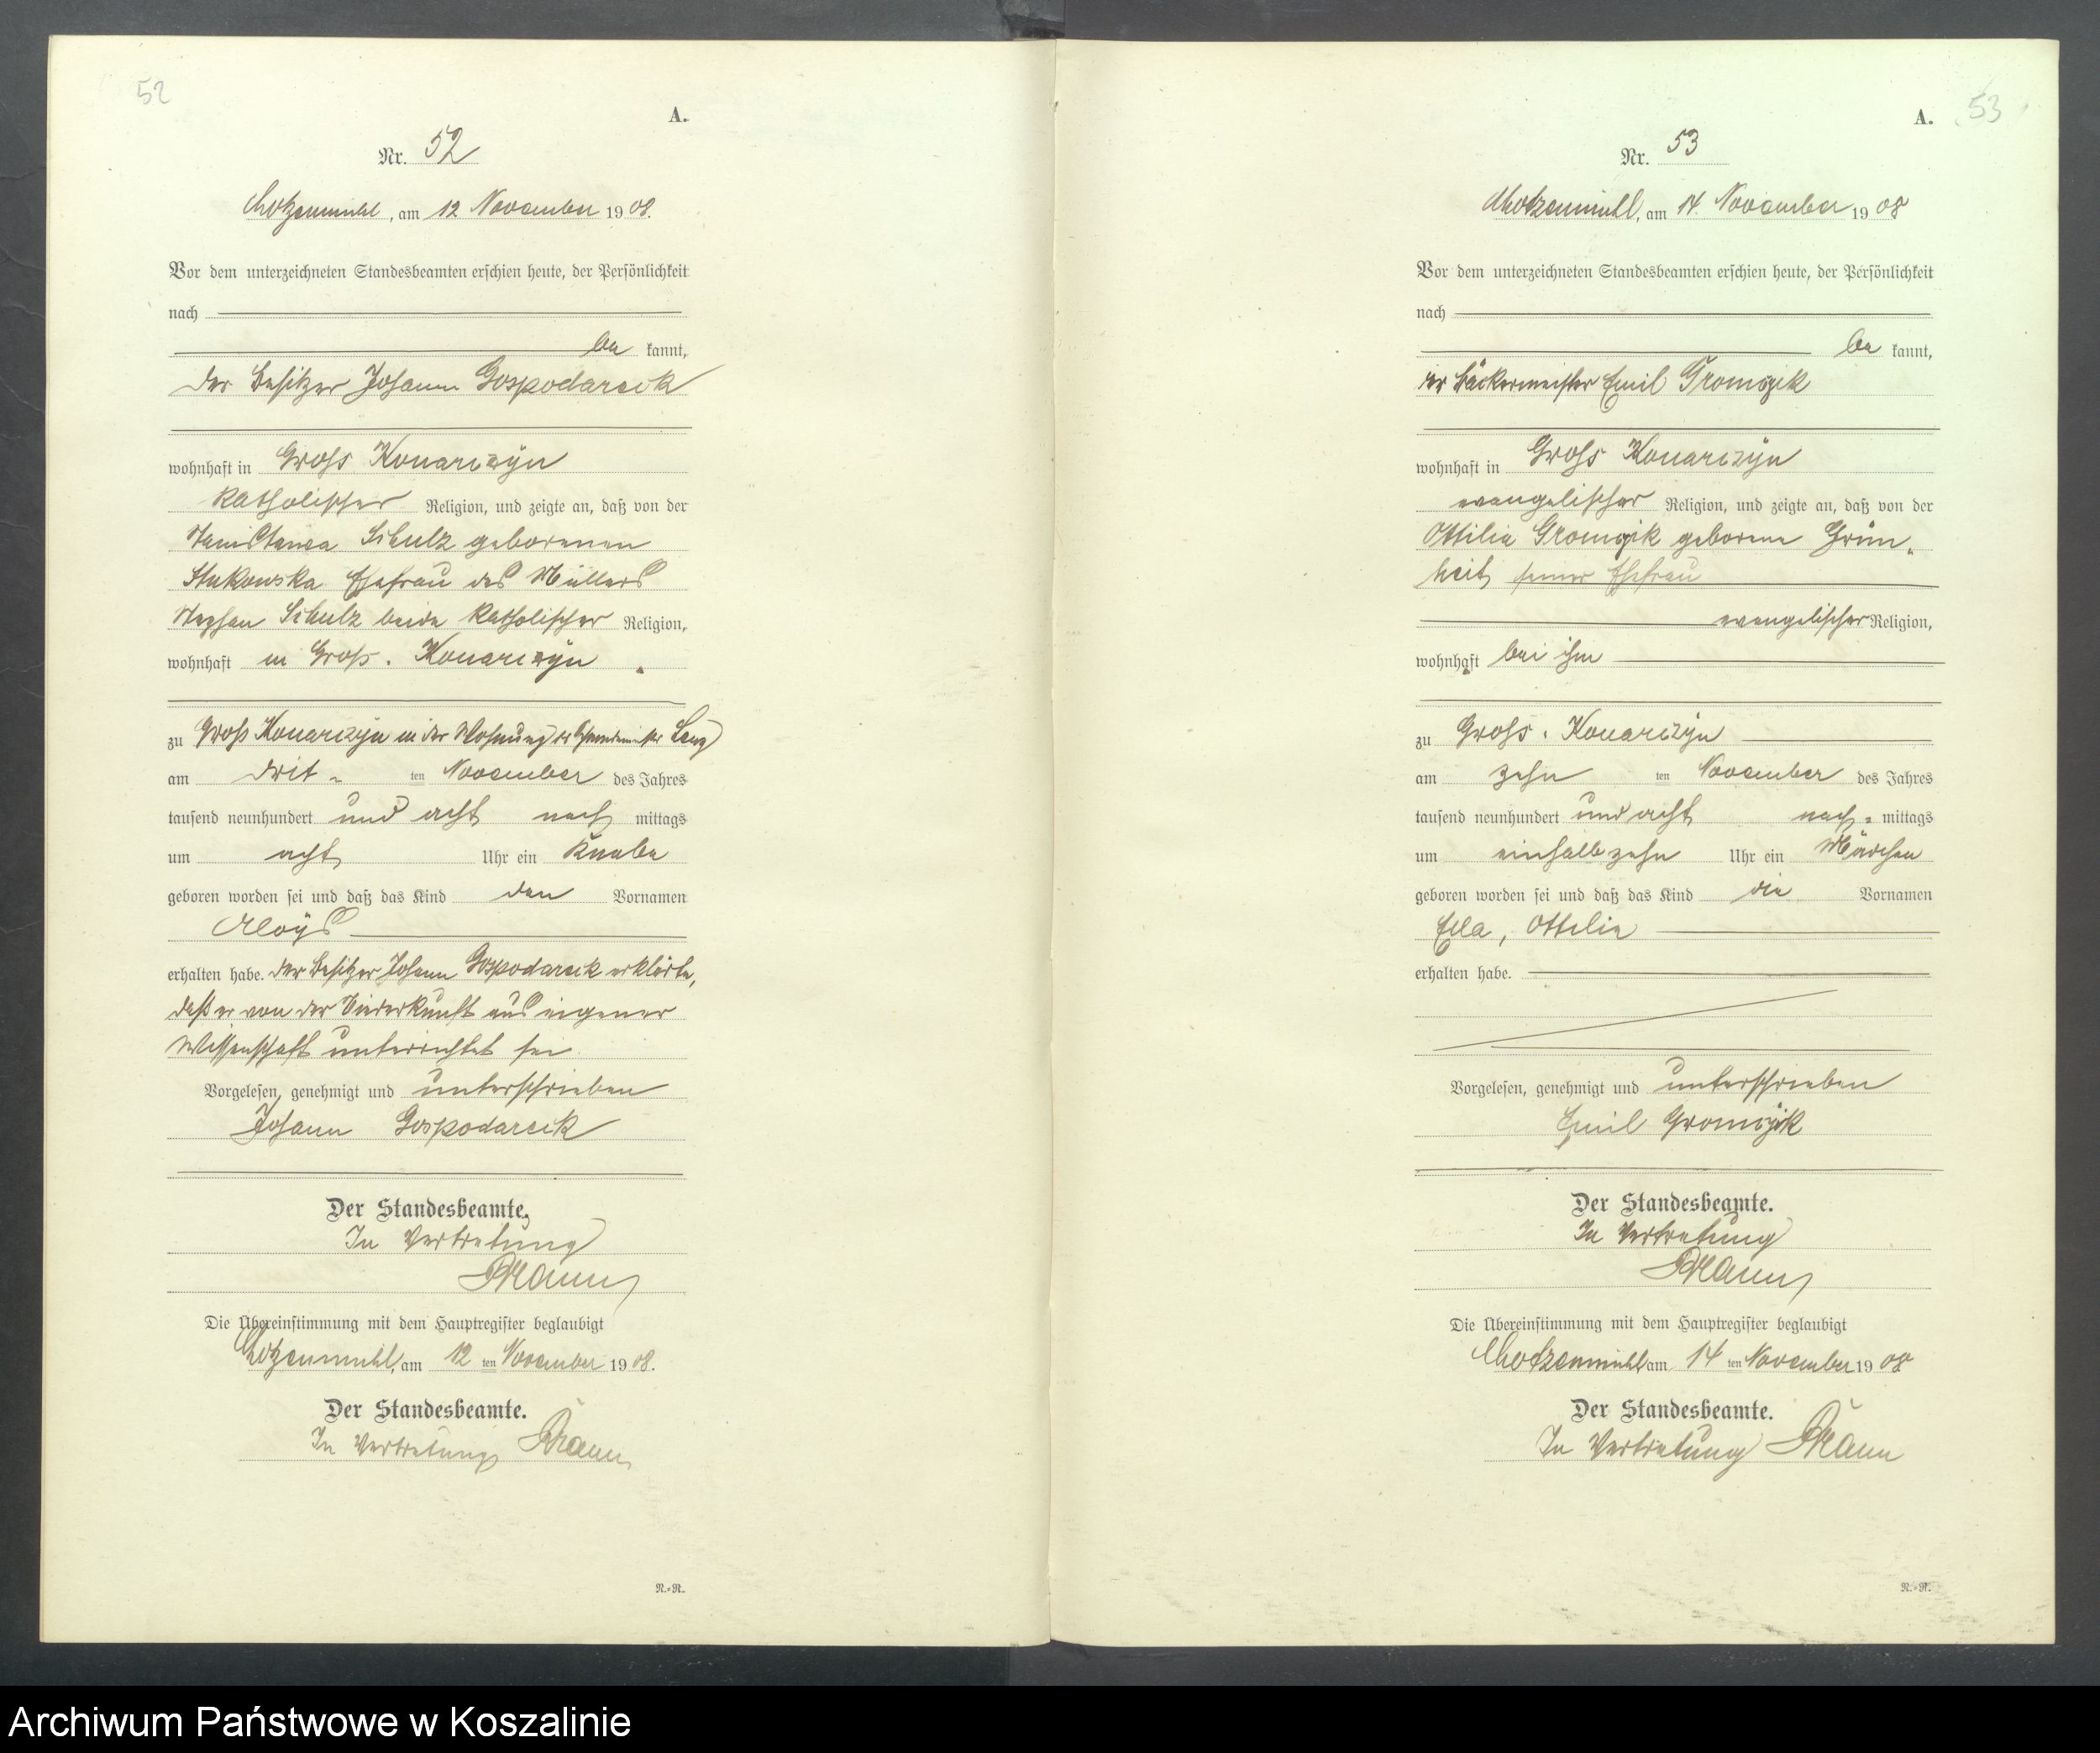 52
A.
Nr. 52
Chotzenmühl, am 12 November 1908.
Vor dem unterzeichneten Standesbeamten erschien heute, der Persönlichkeit
nach
be kannt,
der Besitzer Johann Gospodareck
wohnhaft in Gross Konarczyn
katholischer Religion, und zeigte an, daß von der
Stanislawa Schulz geborenen
Stukowska Ehefrau des Müllers
Stephan Schulz beide katholischer Religion,
wohnhaft in Gross. Konarczyn
zu Gross Konarczyn in der Wohnung
am drit- ten November des Jahres
tausend neunhundert und acht nach mittags
um acht Uhr ein Knabe
geboren worden sei und daß das Kind den Vornamen
Aloys
erhalten habe. Der Besitzer Johann Gospodareck erklärte,
daß er von der Niederkunft aus eigener
Wissenschaft unterrichtet sei
Vorgelesen, genehmigt und unterschrieben
Johann Gospodareck
Der Standesbeamte.
In Vertretung
Die Übereinstimmung mit dem Hauptregister beglaubigt
Chotzenmühl, am 12 ten November 1908.
Der Standesbeamte.
In Vertretung
N.=R.
A. 53
Nr. 53
Chotzenmühl, am 14. November 1908
Vor dem unterzeichneten Standesbeamten erschien heute, der Persönlichkeit
nach
be kannt,
der Bäckermeister Emil Gromczik
wohnhaft in Gross Konarczyn
evangelischer Religion, und zeigte an, daß von der
Ottilie Gromczik geborene Grün-
heit, seiner Ehefrau
evangelischer Religion,
wohnhaft bei ihm
zu Gross. Konarczyn
am zehn ten November des Jahres
tausend neunhundert und acht nach- mittags
um einhalb zehn Uhr ein Mädchen
geboren worden sei und daß das Kind die Vornamen
Ella, Ottilie
erhalten habe.
Vorgelesen, genehmigt und unterschrieben
Emil Gromczik
Der Standesbeamte.
In Vertretung
Die Übereinstimmung mit dem Hauptregister beglaubigt
Chotzenmühl am 14 ten November 1908
Der Standesbeamte.
In Vertretung
N.=R.
Archiwum Państwowe w Koszalinie